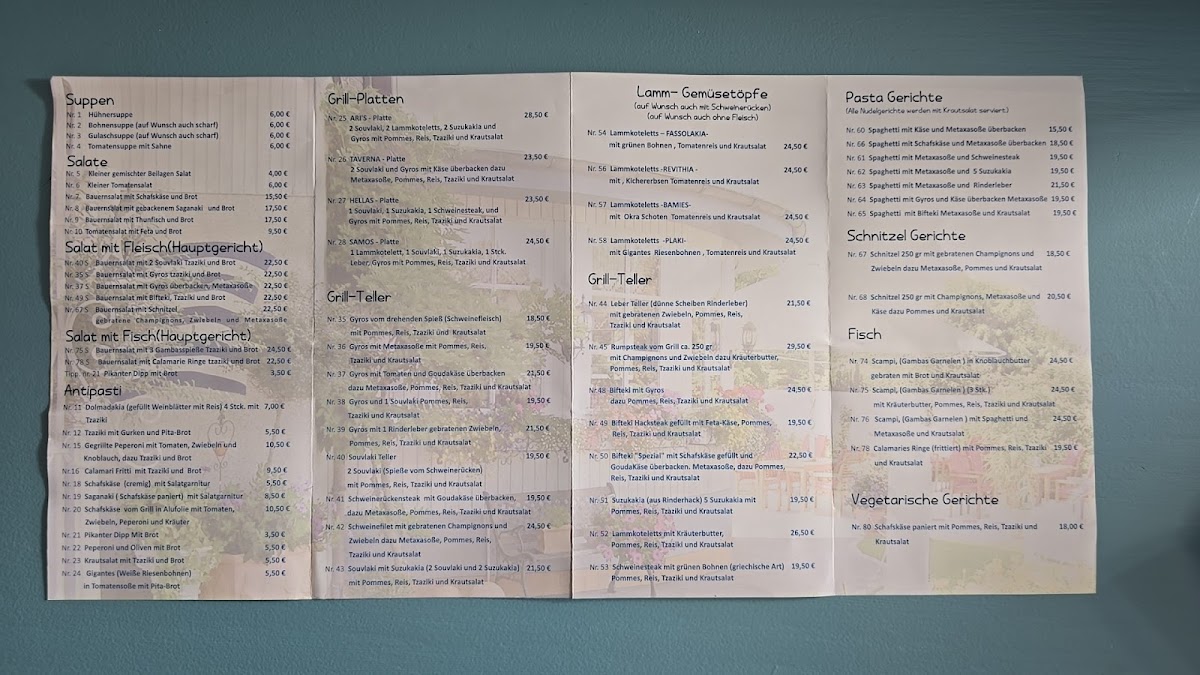 Suppen
Nr. 1 Hühnersuppe 6,00 €
Nr. 2 Bohnensuppe (auf Wunsch auch scharf) 6,00 €
Nr. 3 Gulaschsuppe (auf Wunsch auch scharf) 6,00 €
Nr. 4 Tomatensuppe mit Sahne 6,00 €
Salate
Nr. 5 Kleiner gemischter Beilagen Salat 4,00 €
Nr. 6 Kleiner Tomatensalat 6,00 €
Nr. 7 Bauernsalat mit Schafskäse und Brot 15,50 €
Nr. 8 Bauernsalat mit gebackenem Saganaki und Brot 17,50 €
Nr. 9 Bauernsalat mit Thunfisch und Brot 17,50 €
Nr. 10 Tomatensalat mit Feta und Brot 9,50 €
Salat mit Fleisch(Hauptgericht)
Nr. 40 S Bauernsalat mit 2 Souvlaki Tzaziki und Brot 22,50 €
Nr. 35 S Bauernsalat mit Gyros tzaziki und Brot 22,50 €
Nr. 37 S Bauernsalat mit Gyros überbacken, Metaxasoße 22,50 €
Nr. 49 S Bauernsalat mit Bifteki, Tzaziki und Brot 22,50 €
Nr. 67 S Bauernsalat mit Schnitzel 22,50 €
gebratene Champignons, Zwiebeln und Metaxasoße
Salat mit Fisch(Hauptgericht)
Nr. 75 S Bauernsalat mit 3 Gambasspieße Tzaziki und Brot 24,50 €
Nr. 78 S Bauernsalat mit Calamarie Ringe tzaziki und Brot 22,50 €
Tipp: nr. 21 Pikanter Dipp mit Brot 3,50 €
Antipasti
Nr. 11 Dolmadakia (gefüllt Weinblätter mit Reis) 4 Stck. mit 7,00 €
Tzaziki
Nr. 12 Tzaziki mit Gurken und Pita-Brot 5,50 €
Nr. 15 Gegrillte Peperoni mit Tomaten, Zwiebeln und 10,50 €
Knoblauch, dazu Tzaziki und Brot
Nr.16 Calamari Fritti mit Tzaziki und Brot 9,50 €
Nr. 18 Schafskäse (cremig) mit Salatgarnitur 5,50 €
Nr. 19 Saganaki ( Schafskäse paniert) mit Salatgarnitur 8,50 €
Nr. 20 Schafskäse vom Grill in Alufolie mit Tomaten, 10,50 €
Zwiebeln, Peperoni und Kräuter
Nr. 21 Pikanter Dipp Mit Brot 3,50 €
Nr. 22 Peperoni und Oliven mit Brot 5,50 €
Nr. 23 Krautsalat mit Tzaziki und Brot 5,50 €
Nr. 24 Gigantes (Weiße Riesenbohnen) 5,50 €
in Tomatensoße mit Pita-Brot
Grill-Platten
Nr. 25 ARIS - Platte 28,50 €
2 Souvlaki, 2 Lammkoteletts, 2 Suzukakia und
Gyros mit Pommes, Reis, Tzaziki und Krautsalat
Nr. 26 TAVERNA - Platte 23,50 €
2 Souvlaki und Gyros mit Käse überbacken dazu
Metaxasoße, Pommes, Reis, Tzaziki und Krautsalat
Nr. 27 HELLAS - Platte 23,50 €
1 Souvlaki, 1 Suzukakia, 1 Schweinesteak, und
Gyros mit Pommes, Reis, Tzaziki und Krautsalat
Nr. 28 SAMOS - Platte 24,50 €
1 Lammkotelett, 1 Souvlaki, 1 Suzukakia, 1 Stck.
Leber, Gyros mit Pommes, Reis, Tzaziki und Krautsalat
Grill-Teller
Nr. 35 Gyros vom drehenden Spieß (Schweinefleisch) 18,50 €
mit Pommes, Reis, Tzaziki und Krautsalat
Nr. 36 Gyros mit Metaxasoße mit Pommes, Reis, 19,50 €
Tzaziki und Krautsalat
Nr. 37 Gyros mit Tomaten und Goudakäse überbacken 21,50 €
dazu Metaxasoße, Pommes, Reis, Tzaziki und Krautsalat
Nr. 38 Gyros und 1 Souvlaki Pommes, Reis, 19,50 €
Tzaziki und Krautsalat
Nr. 39 Gyros mit 1 Rinderleber gebratenen Zwiebeln, 21,50 €
Pommes, Reis, Tzaziki und Krautsalat
Nr. 40 Souvlaki Teller 19,50 €
2 Souvlaki (Spieße vom Schweinerücken)
mit Pommes, Reis, Tzaziki und Krautsalat
Nr. 41 Schweinerückensteak mit Goudakäse überbacken, 19,50 €
dazu Metaxasoße, Pommes, Reis, Tzaziki und Krautsalat
Nr. 42 Schweinefilet mit gebratenen Champignons und 24,50 €
Zwiebeln dazu Metaxasoße, Pommes, Reis,
Tzaziki und Krautsalat
Nr. 43 Souvlaki mit Suzukakia (2 Souvlaki und 2 Suzukakia) 21,50 €
mit Pommes, Reis, Tzaziki und Krautsalat
Lamm- Gemüsetöpfe
(auf Wunsch auch mit Schweinerücken)
(auf Wunsch auch ohne Fleisch)
Nr. 54 Lammkoteletts – FASSOLAKIA-
mit grünen Bohnen , Tomatenreis und Krautsalat 24,50 €
Nr. 56 Lammkoteletts -REVITHIA - 24,50 €
mit , Kichererbsen Tomatenreis und Krautsalat
Nr. 57 Lammkoteletts -BAMIES-
mit Okra Schoten Tomatenreis und Krautsalat 24,50 €
Nr. 58 Lammkoteletts -PLAKI- 24,50 €
mit Gigantes Riesenbohnen , Tomatenreis und Krautsalat
Grill-Teller
Nr. 44 Leber Teller (dünne Scheiben Rinderleber) 21,50 €
mit gebratenen Zwiebeln, Pommes, Reis,
Tzaziki und Krautsalat
Nr. 45 Rumpsteak vom Grill ca. 250 gr 29,50 €
mit Champignons und Zwiebeln dazu Kräuterbutter,
Pommes, Reis, Tzaziki und Krautsalat
Nr.48 Bifteki mit Gyros 24,50 €
dazu Pommes, Reis, Tzaziki und Krautsalat
Nr. 49 Bifteki Hacksteak gefüllt mit Feta-Käse, Pommes, 19,50 €
Reis, Tzaziki und Krautsalat
Nr. 50 Bifteki "Spezial" mit Schafskäse gefüllt und 22,50 €
GoudaKäse überbacken. Metaxasoße, dazu Pommes,
Reis, Tzaziki und Krautsalat
Nr. 51 Suzukakia (aus Rinderhack) 5 Suzukakia mit 19,50 €
Pommes, Reis, Tzaziki und Krautsalat
Nr. 52 Lammkoteletts mit Kräuterbutter, 26,50 €
Pommes, Reis, Tzaziki und Krautsalat
Nr. 53 Schweinesteak mit grünen Bohnen (griechische Art) 19,50 €
Pommes, Reis, Tzaziki und Krautsalat
Pasta Gerichte
(Alle Nudelgerichte werden mit Krautsalat serviert.)
Nr. 60 Spaghetti mit Käse und Metaxasoße überbacken 15,50 €
Nr. 66 Spaghetti mit Schafskäse und Metaxasoße überbacken 18,50 €
Nr. 61 Spaghetti mit Metaxasoße und Schweinesteak 19,50 €
Nr. 62 Spaghetti mit Metaxasoße und 5 Suzukakia 19,50 €
Nr. 63 Spaghetti mit Metaxasoße und Rinderleber 21,50 €
Nr. 64 Spaghetti mit Gyros und Käse überbacken Metaxasoße 19,50 €
Nr. 65 Spaghetti mit Bifteki Metaxasoße und Krautsalat 19,50 €
Schnitzel Gerichte
Nr. 67 Schnitzel 250 gr mit gebratenen Champignons und 18,50 €
Zwiebeln dazu Metaxasoße, Pommes und Krautsalat
Nr. 68 Schnitzel 250 gr mit Champignons, Metaxasoße und 20,50 €
Käse dazu Pommes und Krautsalat
Fisch
Nr. 74 Scampi, (Gambas Garnelen ) in Knoblauchbutter 24,50 €
gebraten mit Brot und Krautsalat
Nr. 75 Scampi, (Gambas Garnelen ) (3 Stk.) 24,50 €
mit Kräuterbutter, Pommes, Reis, Tzaziki und Krautsalat
Nr. 76 Scampi, (Gambas Garnelen ) mit Spaghetti und 24,50 €
Metaxasoße und Krautsalat
Nr. 78 Calamaries Ringe (frittiert) mit Pommes, Reis, Tzaziki 19,50 €
und Krautsalat
Vegetarische Gerichte
Nr. 80 Schafskäse paniert mit Pommes, Reis, Tzaziki und 18,00 €
Krautsalat